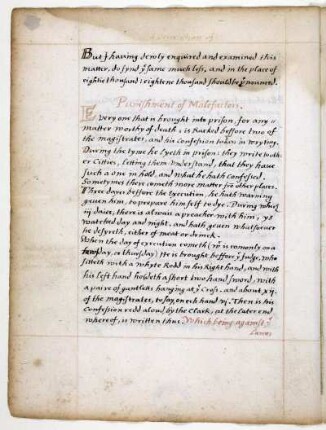 But I having dewly enquired and examined this
matter, do fynd yͤ same much less, and in the place of
eightie thousand: eightene thousand should be yͤ nomber.
Punishment of Malefactors.
Every one that is brought into prison, for any
matter worthy of death, is Racked before two of
the magistrates, and his confession taken in wryting.
During the tyme he lyeth in prison: they write to other
Citties, letting them understand, that they have
such a one in hold, and what he hath Confessed.
Sometymes there cometh more matter from other places.
Three dayes before the Execution, he hath warning
given him, to prepare him self to dye. During whic
iij daies, there is alwais a preacher with him, yͤ
watched day and night, and hath geven whatsoever
he desyreth, either of meat or drinck.
When the day of execution cometh (wͨ is comonly on a
tewsday, or thursday) He is brought before yͤ Judge, who
sitteth with a whyte Rodd in his Right hand, and with
his left hand holdeth a short two hand sword, with
a paire of gantletts hanging at yͤ Cross. and about xij.
of the magistrates, to say, on ech hand vj. Then is his
Confession redd aloud by the Clark, at the later end
whereof, is written thus. Which being against yͤ
Lawes